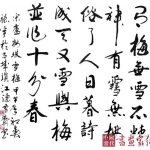 有梅無雪不精
神有雪無詩
俗了人日暮詩
成天又雪與梅
並作十分春
宋盧梅坡雪梅